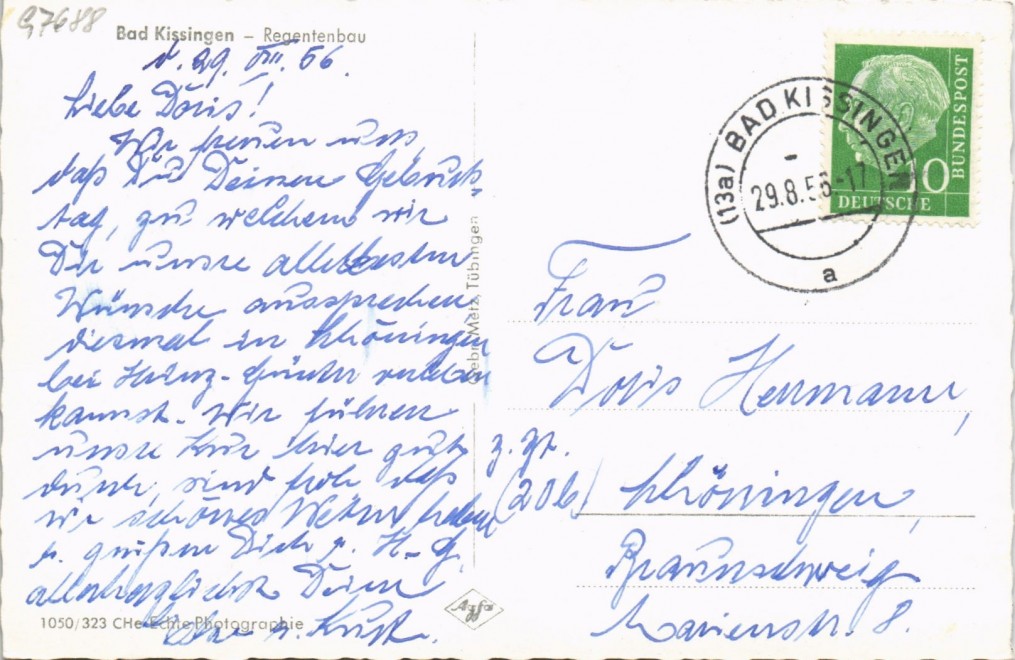 G7688
Bad Kissingen – Regentenbau
d. 29. VIII. 56.
Liebe Doris!
Wir freuen uns,
daß Du Deinen Geburts-
tag, zu welchem wir
Dir unsre allerbesten
Wünsche aussprechen
diesmal in Schöningen
bei Heinz-Günter verleben
kannst. Wir führen
unsre Kur hier gut
durch, sind froh daß
wir schönes Wetter haben
u. grüßen Dich u. H-G.
allerherzlichst Deine
u. Kurt.
1050/323 CHe Echte Photographie
Gebr. Metz, Tübingen
Agfa
(13a) BAD KISSINGEN
29.8.56-17
a
DEUTSCHE
BUNDESPOST
10
Frau
Doris Herrmann,
z. Zt.
(20b) Schöningen,
Braunschweig
Marienstr. 8.